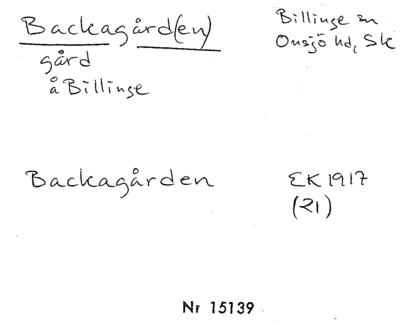 Backagård(en)
gård
å Billinge
Billinge sn
Onsjö hd, Sk
Backagården
EK 1917
(21)
Nr 15139